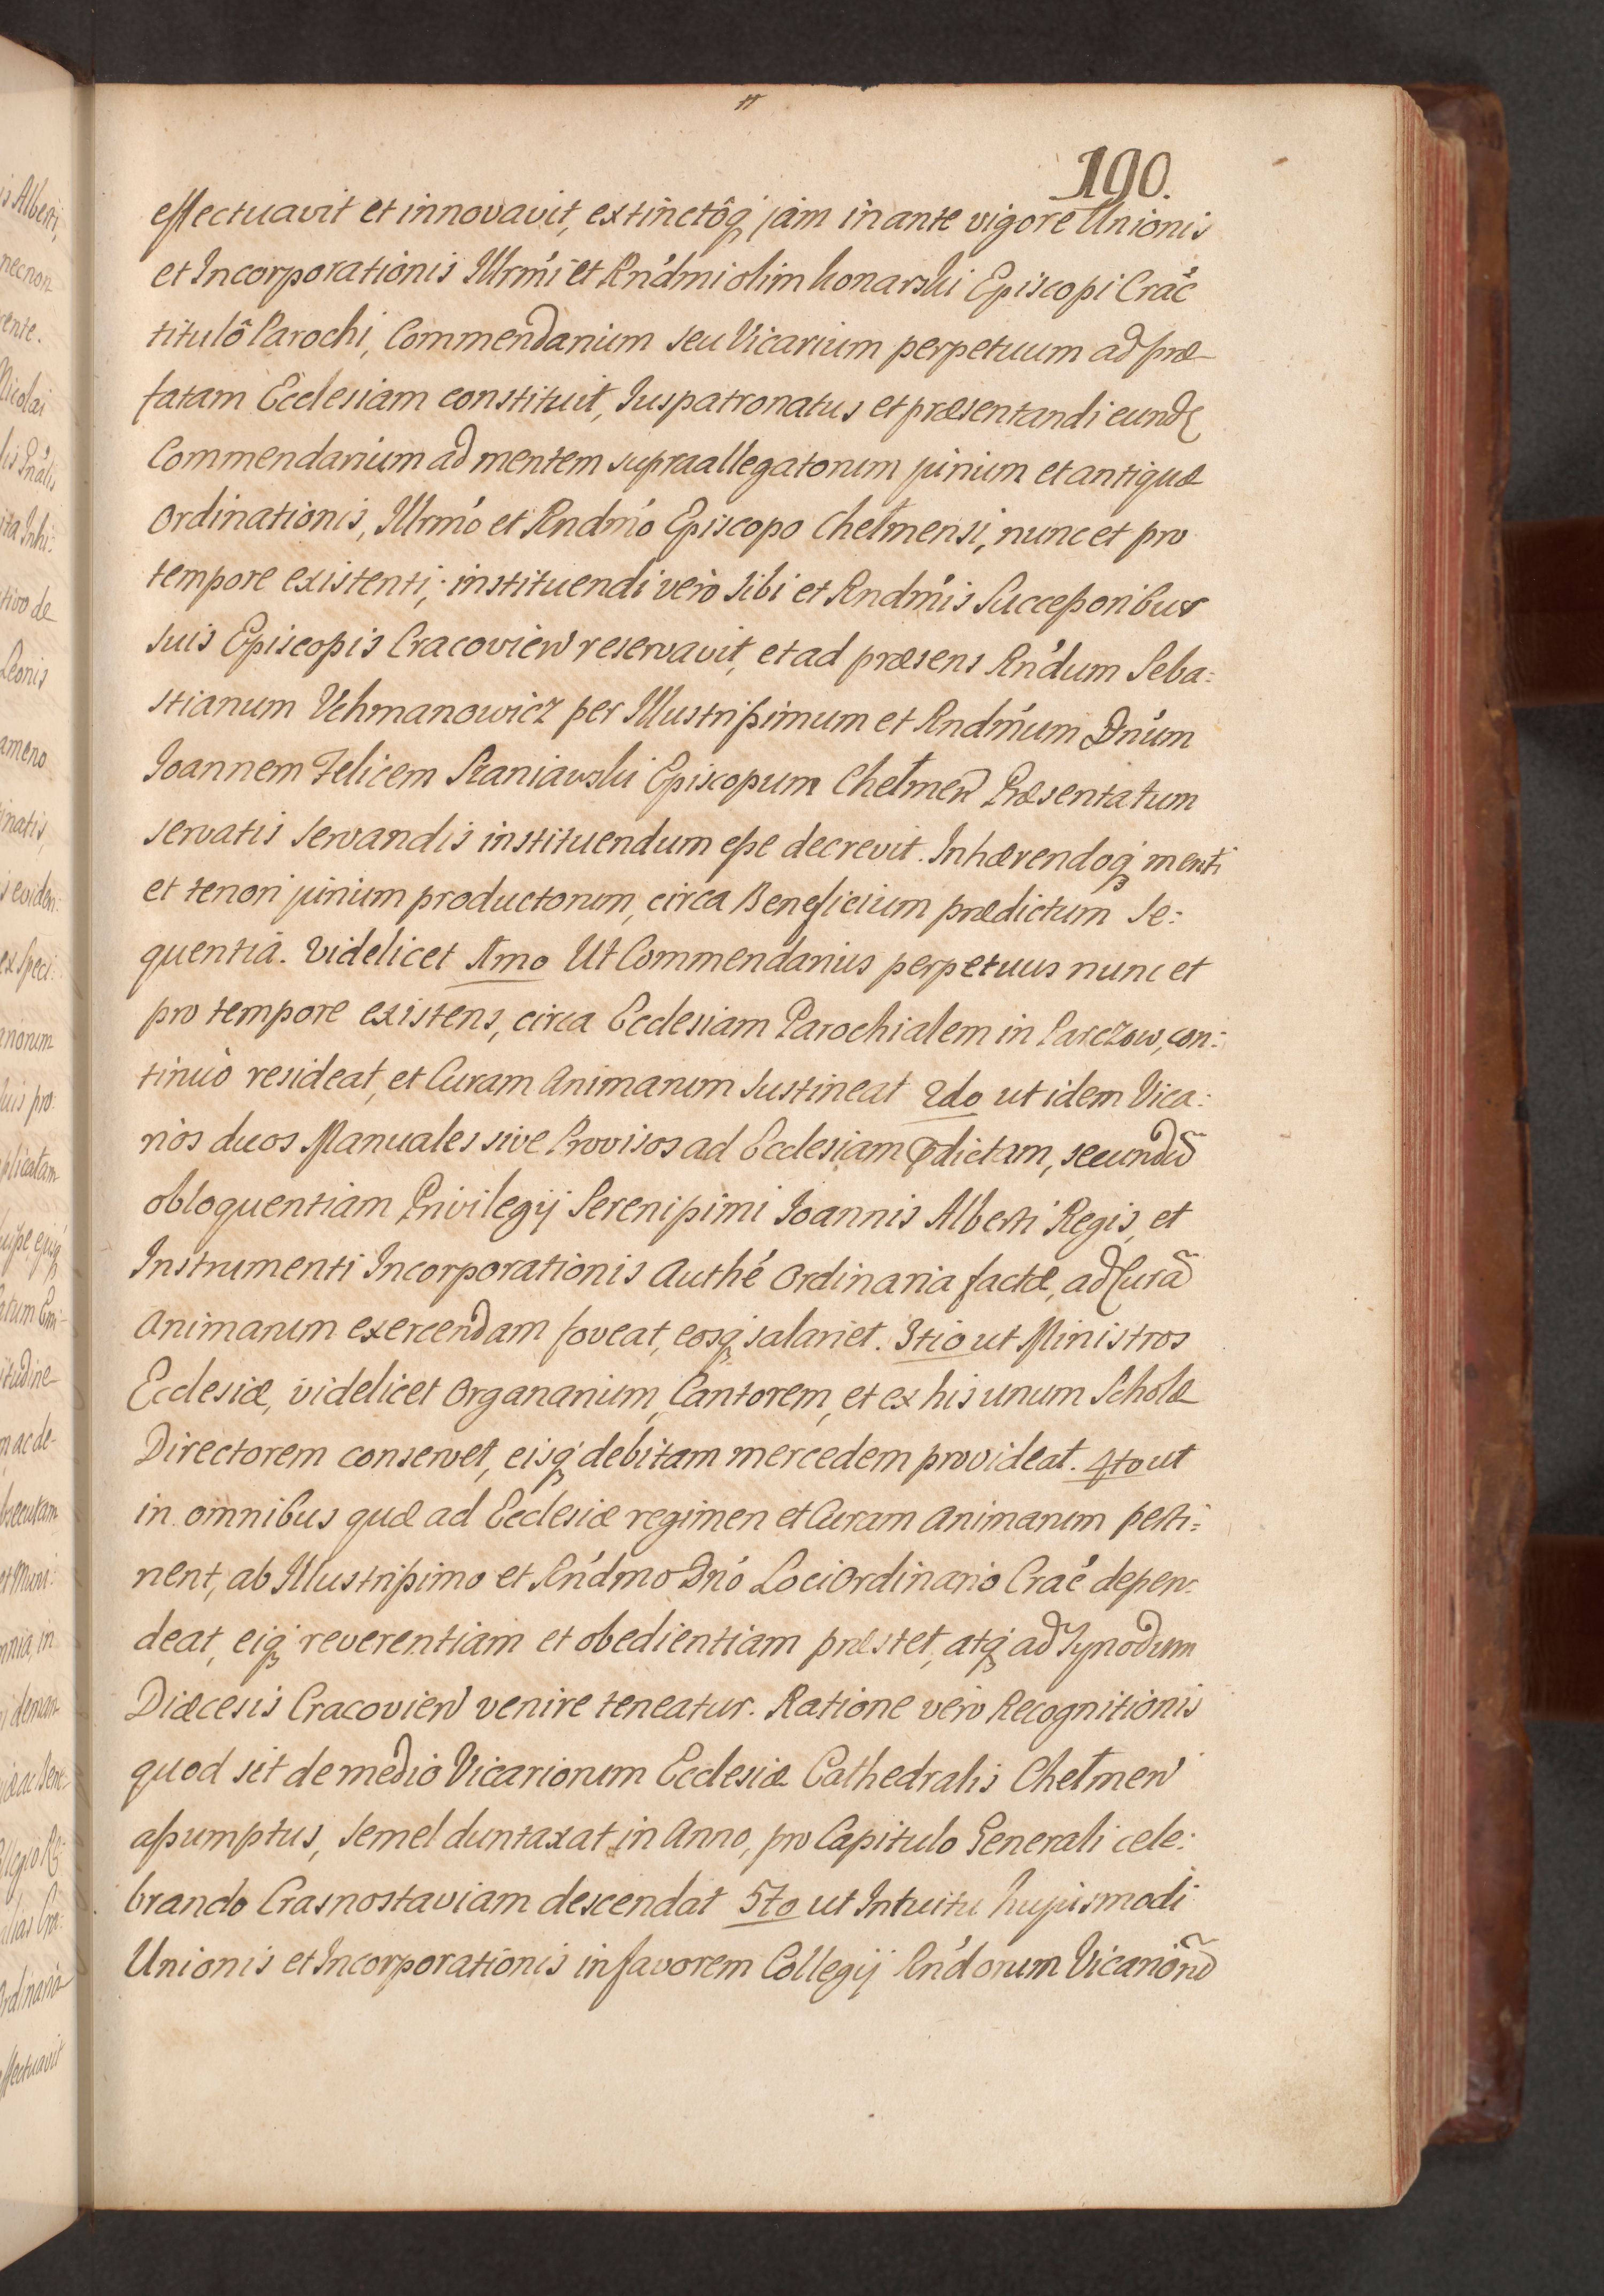 190.
effectuavit et innovavit, extinctôq; jam inante vigore Unionis
et Incorporationis Illrmi et Rndmi olim Konarski Episcopi Crac
titulô Parochi, Commendarium seu Vicarium perpetuum ad præ-
fatam Ecclesiam constituit, Iuspatronatus et præsentandi eund
Commendarium ad mentem supraallegatorum jurium et antiquæ
Ordinationis, Illrmo et Rndmo Episcopo Chełmensi, nunc et pro
tempore existenti, instituendi verò sibi et Rndmis Successoribus
suis Episcopis Cracovien reservavit, et ad præsens Rndum Seba:
stianum Uchmanowicz per Illustrissimum et Rndmum Dnum
Ioannem Felicem Szaniavski Episcopum Chełmen Præsentatum
servatis servandis instituendum esse decrevit. Inhærendoq; menti
et tenori jurium productorum, circa Beneficium prædictum se:
quentia. Videlicet 1mo Ut Commendarius perpetuus nunc et
pro tempore existens, circa Ecclesiam Parochialem in Parczow, con:
tinuò resideat, et Curam Animarum sustineat 2do ut idem Vica:
rios duos Manuales sive Provisos ad Ecclesiam pdictam, secundũ
obloquentiam Privilegij Serenissimi Ioannis Alberti Regis, et
Instrumenti Incorporationis Authé Ordinaria factæ, ad Curã
Animarum exercendam foveat, eosq; salariet. 3tio ut Ministros
Ecclesiæ, videlicet Organarium, Cantorem, et ex his unum Scholæ
Directorem conservet, eisq; debitam mercedem provideat. 4to ut
in omnibus quæ ad Ecclesiæ regimen et Curam Animarum perti:
nent, ab Illustrissimo et Rndmo Dno Loci Ordinario Crac depen:
deat, eiq; reverentiam et obedientiam præstet, atq; ad Synodum
Diæcesis Cracovien venire teneatur. Ratione verò Recognitionis
quod sit de medio Vicariorum Ecclesiæ Cathedralis Chełmen
assumptus, semel duntaxat in Anno, pro Capitulo Generali cele:
brando Crasnostaviam descendat 5to ut Intuitu hujusmodi
Unionis et Incorporationis in favorem Collegij Rndorum Vicariorũ